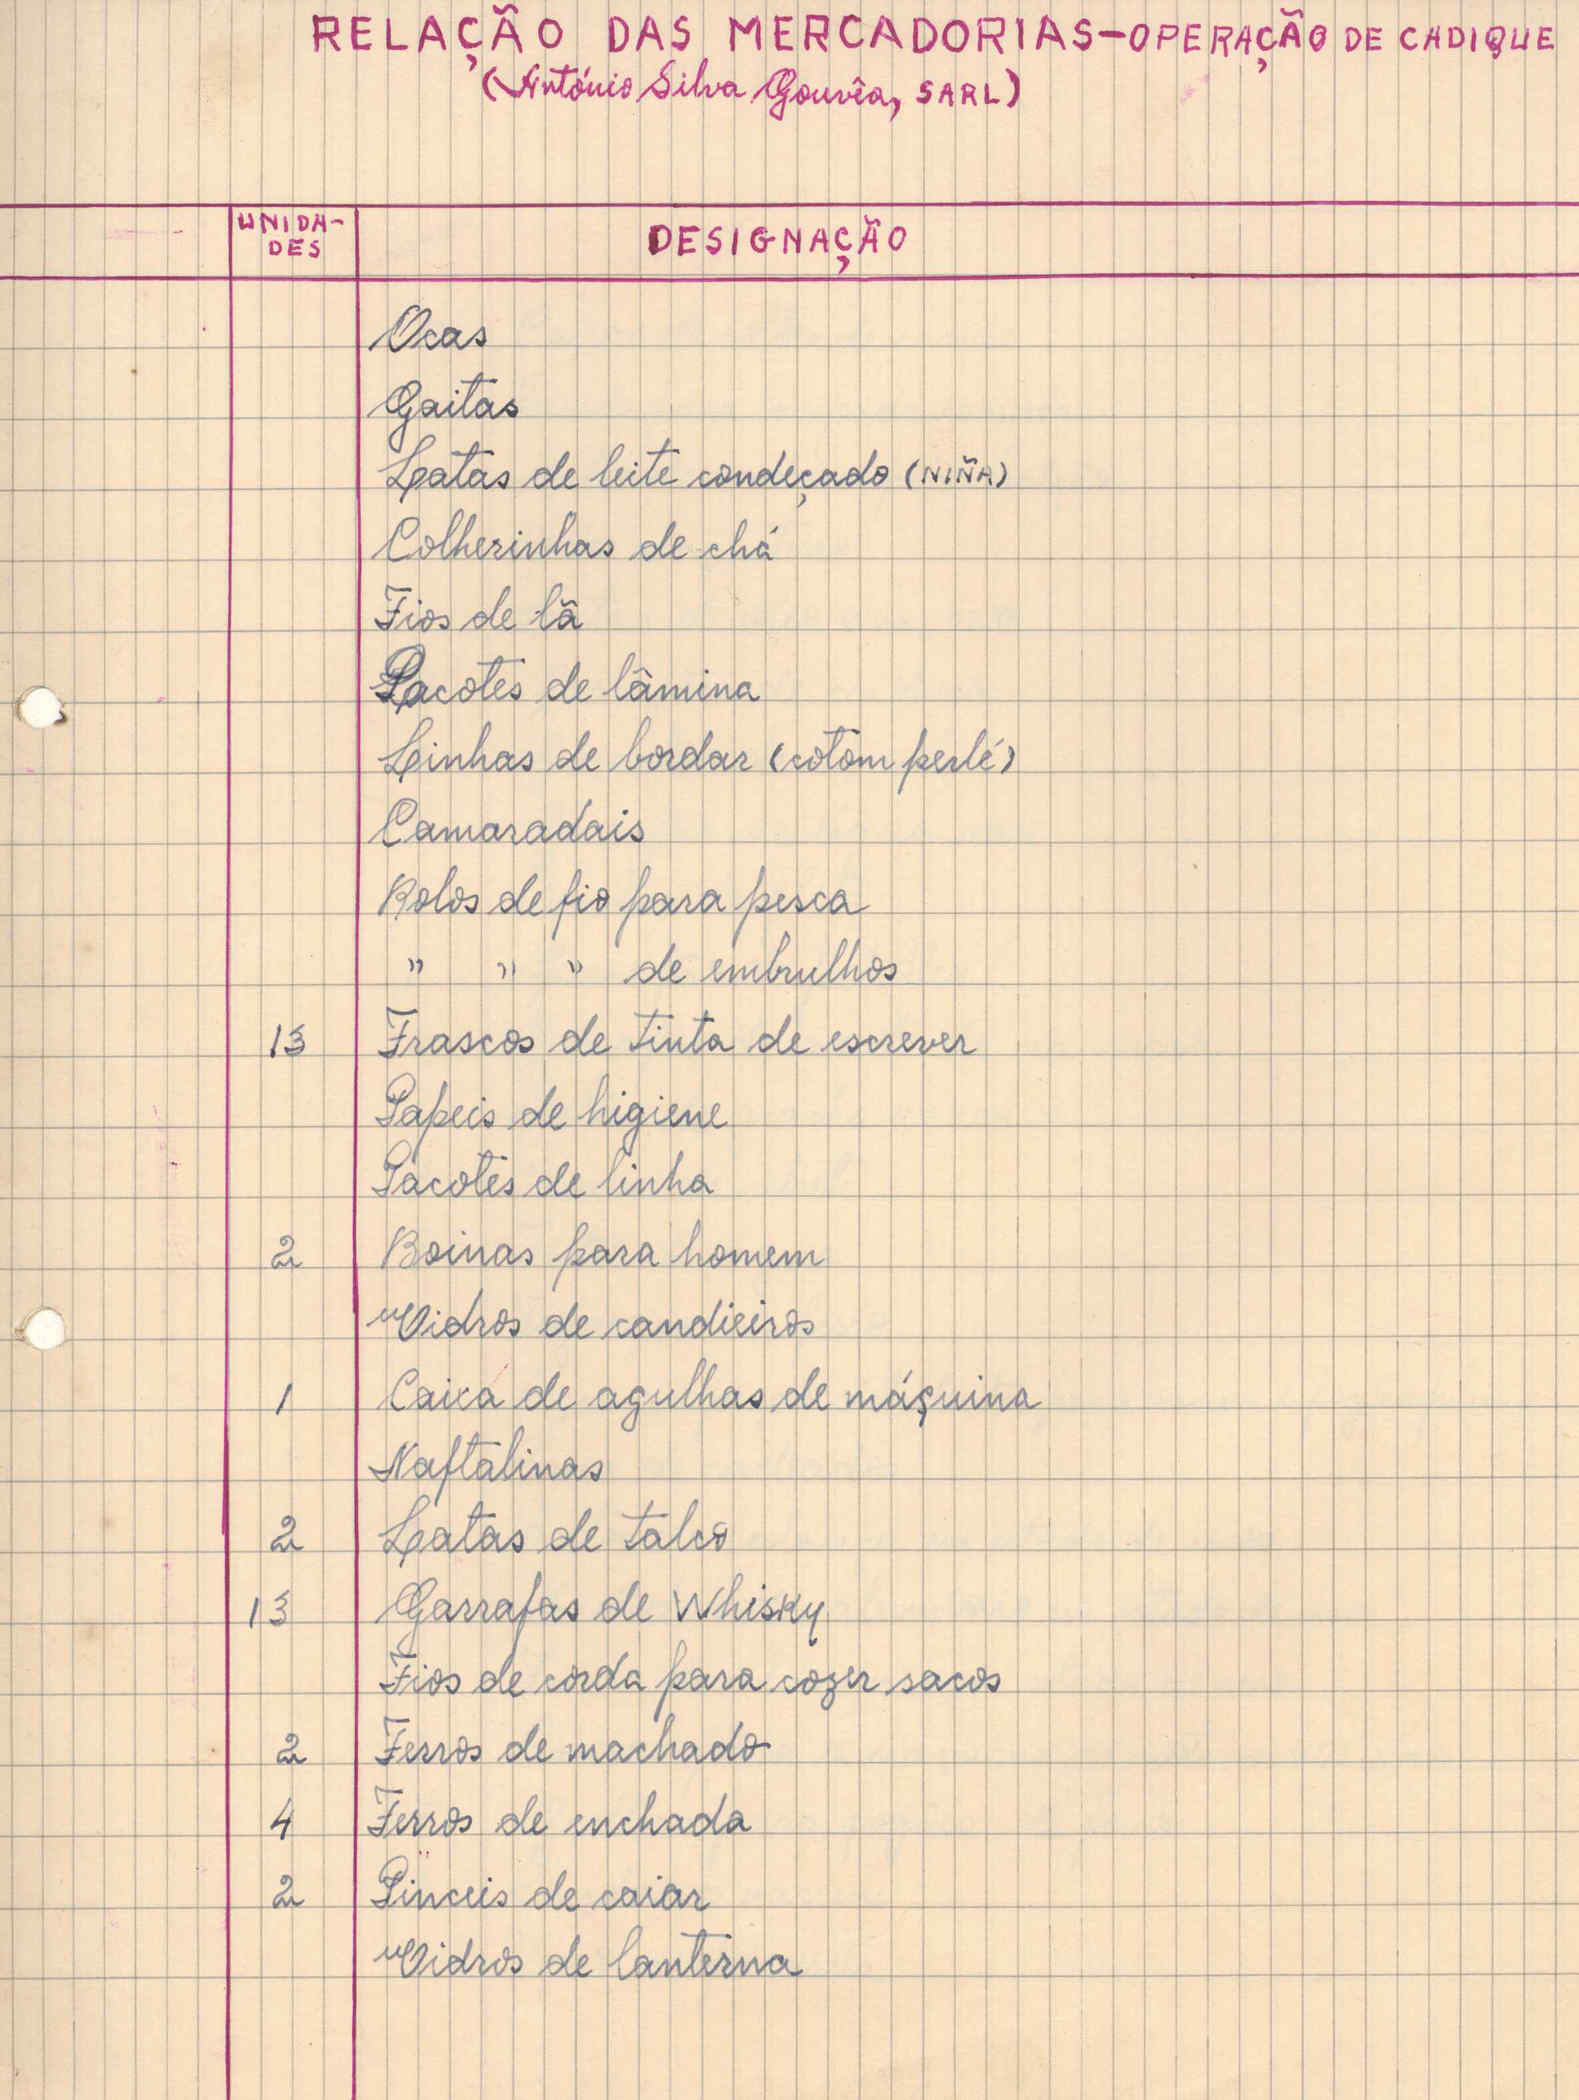 RELAÇÃO DAS MERCADORIAS-OPERAÇÃO DE CADIQUE
(António Silva Gouvêa, SARL)
UNIDA-
DES
DESIGNAÇÃO
Ocas
Gaitas
Latas de leite condeçado (NIÑA)
Colherinhas de chá
Fios de lã
Pacotes de lâmina
Linhas de bordar (cotom perlé)
Camaradais
Rolos de fio para pesca
" " " de embrulhos
13 Frascos de tinta de escrever
Papeis de higiene
Pacotes de linha
2 Boinas para homem
Vidros de candieiros
1 Caixa de agulhas de máquina
Naftalinas
2 Latas de talco
13 Garrafas de Whisky
Fios de corda para cozer sacos
2 Ferros de machado
4 Ferros de enchada
2 Pinceis de caiar
Vidros de lanterna